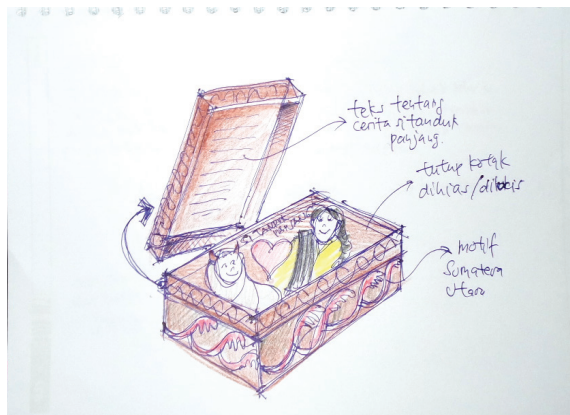 teks tentang
cerita si tanduk
panjang.
tutup kotak
dihias/dilukis
SI TANDUK
PANJANG
motif
Sumatera
Utara